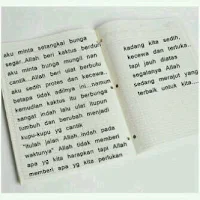 aku minta setangkai bunga
segar..Allah beri kaktus berduri
aku minta bunga mungil nan
cantik..Allah beri ulat berbulu
aku sedih protes dan kecewa..
betapa tidak adilnya ini..namun
kemudian kaktus itu berbunga
sangat indah lalu ulat itupun
tumbuh dan berubah menjadi
kupu-kupu yg cantik
"Itulah jalan Allah..indah pada
waktunya" Allah tidak memberi
apa yg kita harapkan tapi Allah
memberi apa yg kita perlukan
kadang kita sedih,
kecewa dan terluka..
tapi jauh diatas
segalanya Allah
sedang merajut yang
terbaik untuk kita....